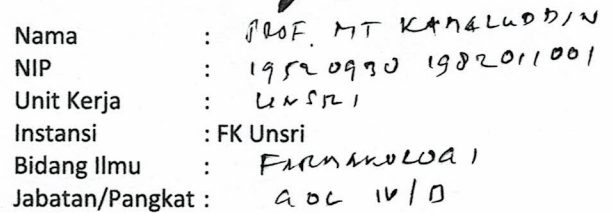 Nama : PROF. MT KAMALUDDIN
NIP : 19520930 198201 1 001
Unit Kerja : UNSRI
Instansi : FK Unsri
Bidang Ilmu : FARMAKOLOGI
Jabatan/Pangkat : GOL IV/D